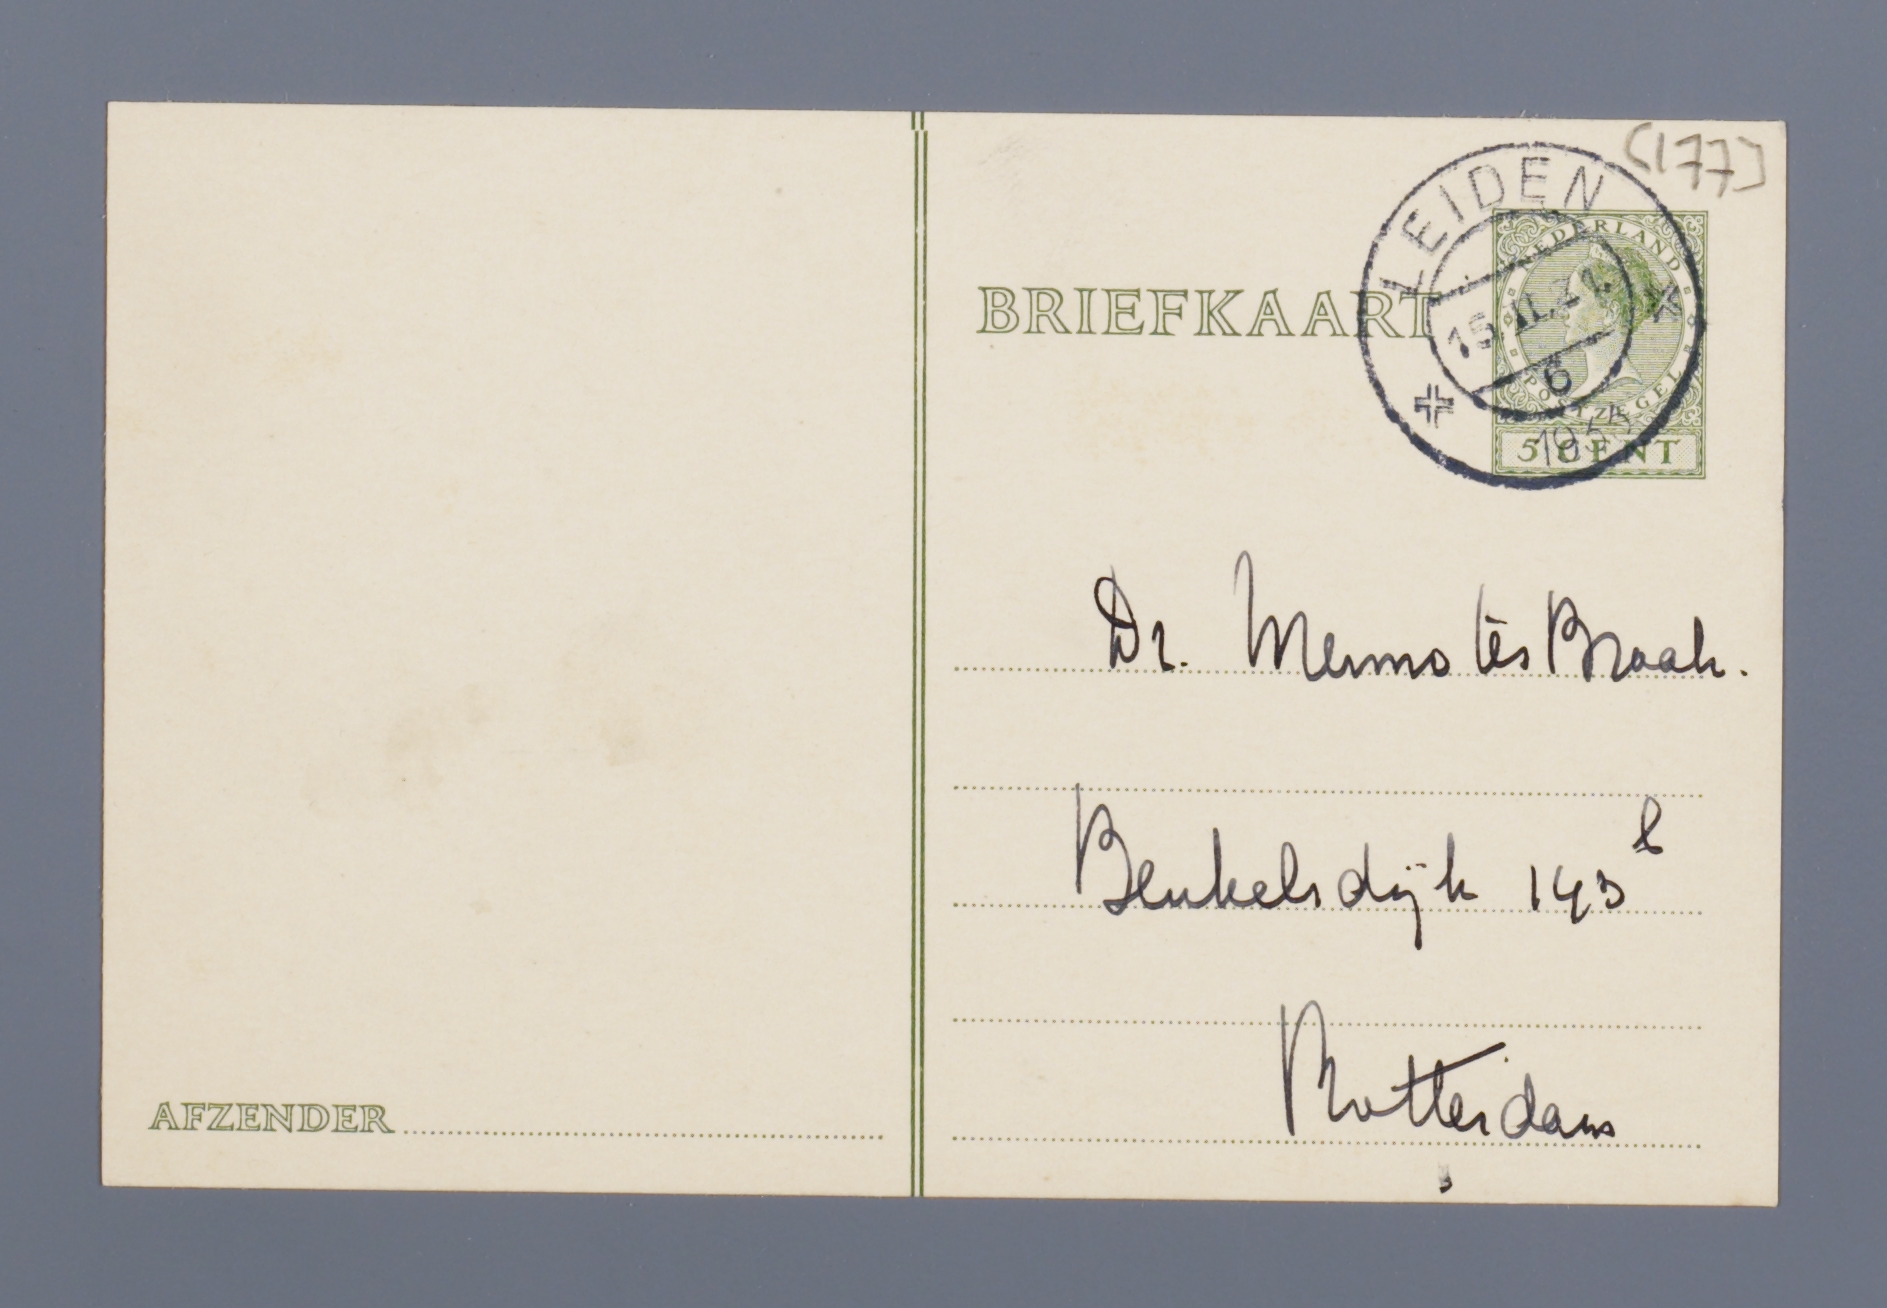 [177]
LEIDEN
15.II.21
6
1933
NEDERLAND
POSTZEGEL
5 CENT
BRIEFKAART
Dr. Menno ter Braak.
Beukelsdijk 143 b
Rotterdam
AFZENDER